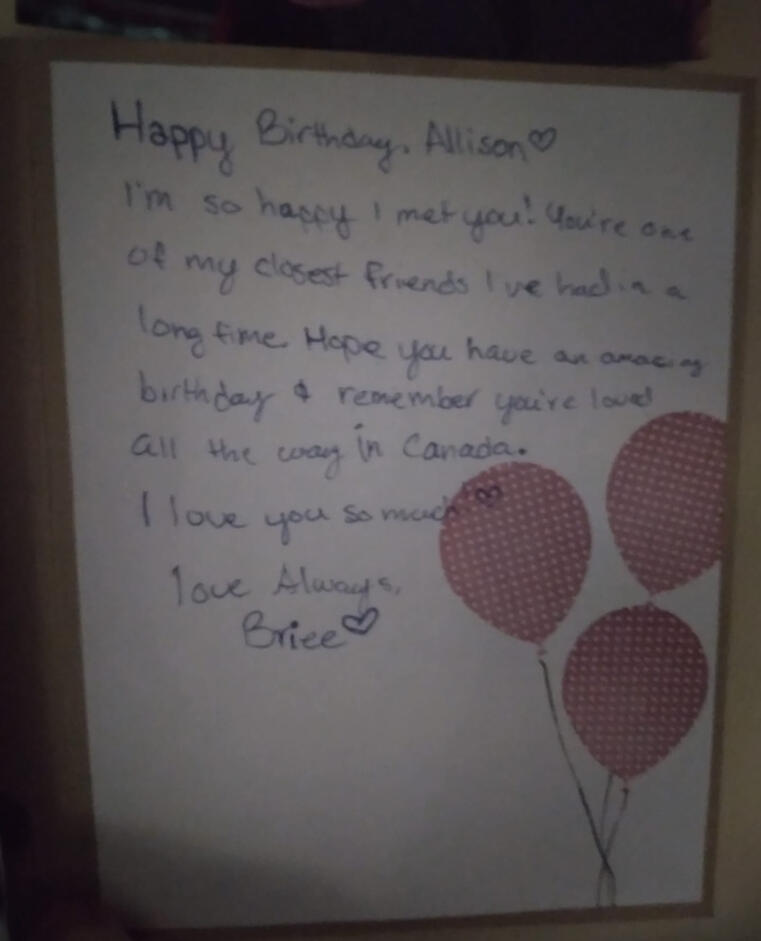 Happy Birthday, Allison♡
I'm so happy I met you! You're one
of my closest friends I've had in a
long time. Hope you have an amazing
birthday & remember you're loved
all the way in Canada.
I love you so much ♡
Love Always,
Briee♡